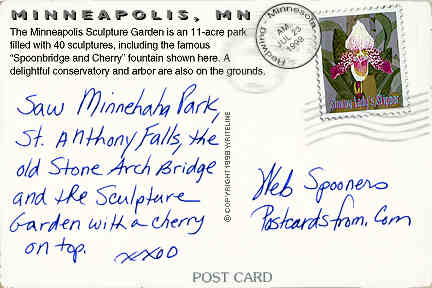 MINNEAPOLIS, MN
The Minneapolis Sculpture Garden is an 11-acre park
filled with 40 sculptures, including the famous
"Spoonbridge and Cherry" fountain shown here. A
delightful conservatory and arbor are also on the grounds.
Redwing - Minnesota
AM
JUL 23
1998
Saw Minnehaha Park,
St. Anthony Falls, the
old Stone Arch Bridge
and the Sculpture
Garden with a cherry
on top.
xxoo
© COPYRIGHT 1998 WRITELINE
Web Spooners
Postcardsfrom.Com
POST CARD